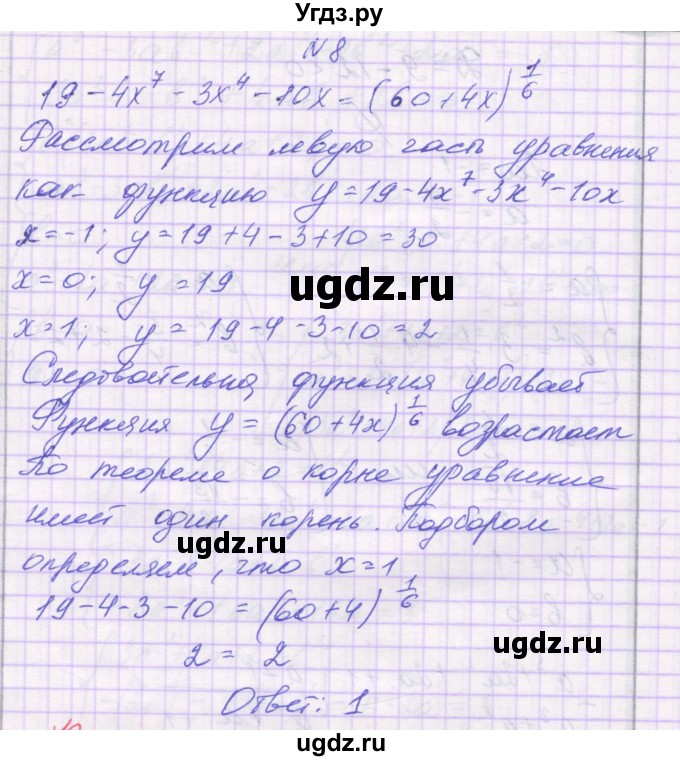 Угдз.ру
N 8
19 - 4x⁷ - 3x⁴ - 10x = (60 + 4x)^(1/6)
Рассмотрим левую часть уравнения
как функцию y = 19 - 4x⁷ - 3x⁴ - 10x
x = -1; y = 19 + 4 - 3 + 10 = 30
x = 0; y = 19
ugdz.ru
x = 1; y = 19 - 4 - 3 - 10 = 2
Следовательно, функция убывает
Функция y = (60 + 4x)^(1/6) возрастает
По теореме о корне уравнение
имеет один корень. Подбором
ugdz.ru
определяем, что x = 1
19 - 4 - 3 - 10 = (60 + 4)^(1/6)
ugdz.ru
2 = 2
Ответ: 1
ugdz.ru